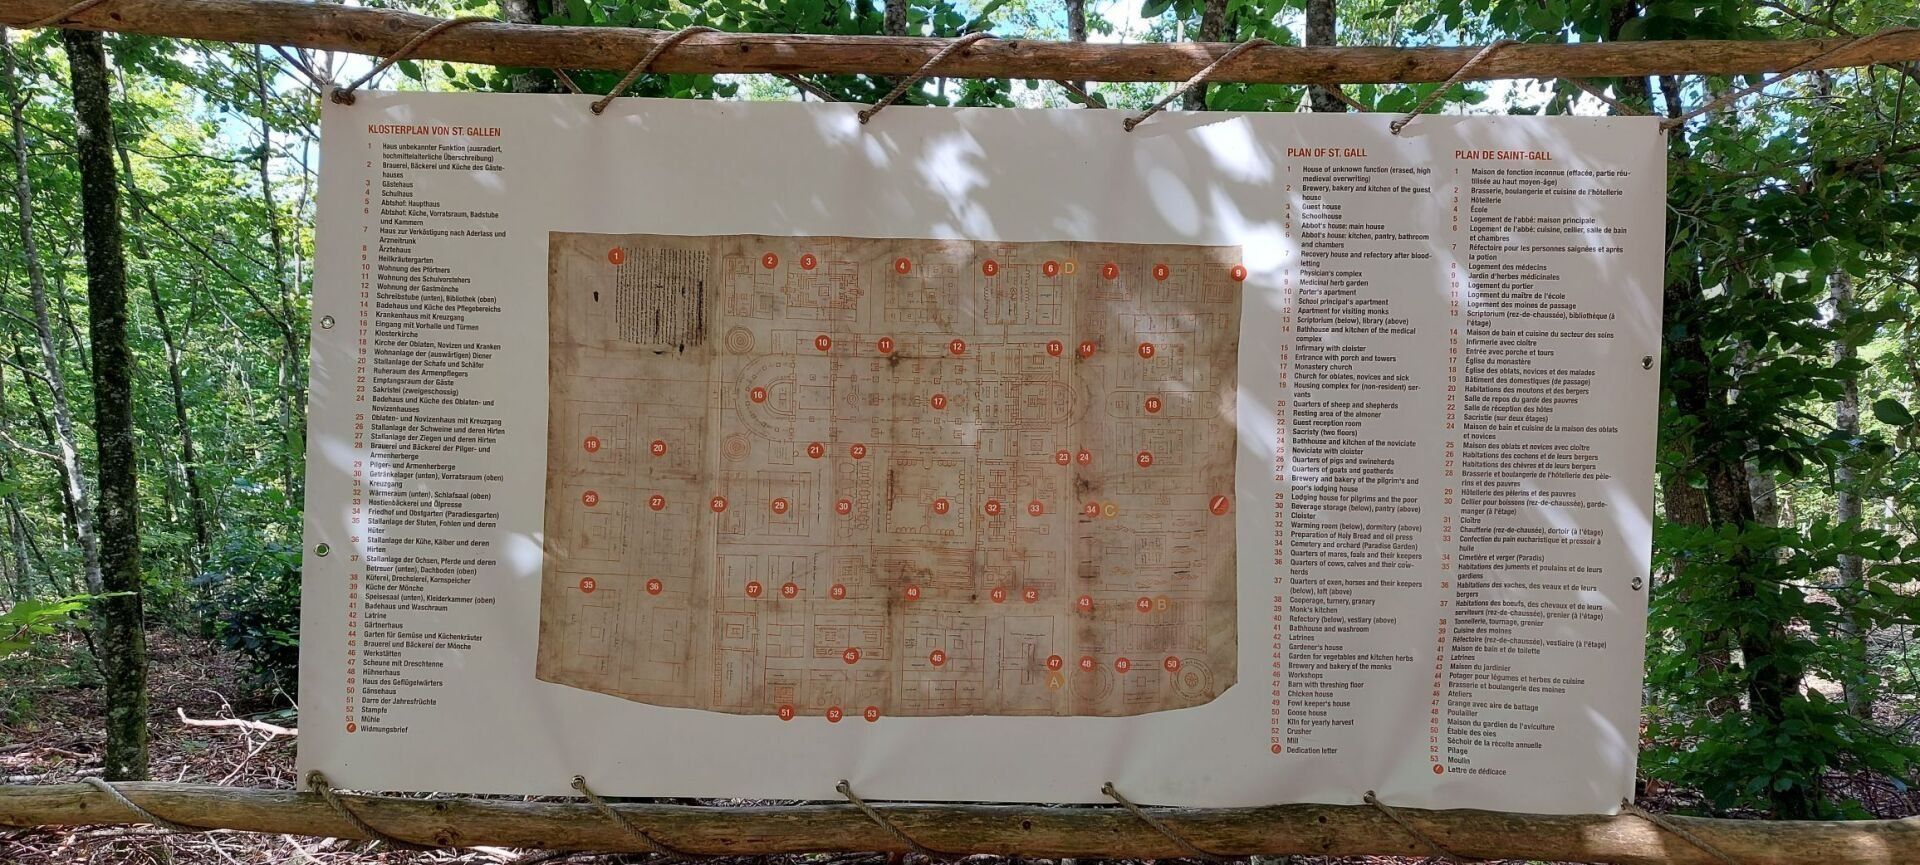 KLOSTERPLAN VON ST. GALLEN
1 Haus unbekannter Funktion (ausradiert,
hochmittelalterliche Überschreibung)
2 Brauerei, Bäckerei und Küche des Gäste-
hauses
3 Gästehaus
4 Schulhaus
5 Abtshof: Haupthaus
6 Abtshof: Küche, Vorratsraum, Badstube
und Kammern
7 Haus zur Verköstigung nach Aderlass und
Arzneitrunk
8 Ärztehaus
9 Heilkräutergarten
10 Wohnung des Pförtners
11 Wohnung des Schulvorstehers
12 Wohnung der Gastmönche
13 Schreibstube (unten), Bibliothek (oben)
14 Badehaus und Küche des Pflegebereichs
15 Krankenhaus mit Kreuzgang
16 Eingang mit Vorhalle und Türmen
17 Klosterkirche
18 Kirche der Oblaten, Novizen und Kranken
19 Wohnanlage der (auswärtigen) Diener
20 Stallanlage der Schafe und Schäfer
21 Ruheraum des Armenpflegers
22 Empfangsraum der Gäste
23 Sakristei (zweigeschossig)
24 Badehaus und Küche des Oblaten- und
Novizenhauses
25 Oblaten- und Novizenhaus mit Kreuzgang
26 Stallanlage der Schweine und deren Hirten
27 Stallanlage der Ziegen und deren Hirten
28 Brauerei und Bäckerei der Pilger- und
Armenherberge
29 Pilger- und Armenherberge
30 Getränkelager (unten), Vorratsraum (oben)
31 Kreuzgang
32 Wärmeraum (unten), Schlafsaal (oben)
33 Hostienbäckerei und Ölpresse
34 Friedhof und Obstgarten (Paradiesgarten)
35 Stallanlage der Stuten, Fohlen und deren
Hüter
36 Stallanlage der Kühe, Kälber und deren
Hirten
37 Stallanlage der Ochsen, Pferde und deren
Betreuer (unten), Dachboden (oben)
38 Küferei, Drechslerei, Kornspeicher
39 Küche der Mönche
40 Speisesaal (unten), Kleiderkammer (oben)
41 Badehaus und Waschraum
42 Latrine
43 Gärtnerhaus
44 Garten für Gemüse und Küchenkräuter
45 Brauerei und Bäckerei der Mönche
46 Werkstätten
47 Scheune mit Dreschtenne
48 Hühnerhaus
49 Haus des Geflügelwärters
50 Gänsehaus
51 Darre der Jahresfrüchte
52 Stampfe
53 Mühle
Widmungsbrief
1 2 3 4 5 6 D 7 8 9
10 11 12 13 14 15
16 17 18
19 20 21 22 23 24 25
26 27 28 29 30 31 32 33 34 C
35 36 37 38 39 40 41 42 43 44 B
45 46 47 48 49 50
A
51 52 53
PLAN OF ST. GALL
1 House of unknown function (erased, high
medieval overwriting)
2 Brewery, bakery and kitchen of the guest
house
3 Guest house
4 Schoolhouse
5 Abbot's house: main house
6 Abbot's house: kitchen, pantry, bathroom
and chambers
7 Recovery house and refectory after blood-
letting
8 Physician's complex
9 Medicinal herb garden
10 Porter's apartment
11 School principal's apartment
12 Apartment for visiting monks
13 Scriptorium (below), library (above)
14 Bathhouse and kitchen of the medical
complex
15 Infirmary with cloister
16 Entrance with porch and towers
17 Monastery church
18 Church for oblates, novices and sick
19 Housing complex for (non-resident) ser-
vants
20 Quarters of sheep and shepherds
21 Resting area of the almoner
22 Guest reception room
23 Sacristy (two floors)
24 Bathhouse and kitchen of the noviciate
25 Noviciate with cloister
26 Quarters of pigs and swineherds
27 Quarters of goats and goatherds
28 Brewery and bakery of the pilgrim's and
poor's lodging house
29 Lodging house for pilgrims and the poor
30 Beverage storage (below), pantry (above)
31 Cloister
32 Warming room (below), dormitory (above)
33 Preparation of Holy Bread and oil press
34 Cemetery and orchard (Paradise Garden)
35 Quarters of mares, foals and their keepers
36 Quarters of cows, calves and their cow-
herds
37 Quarters of oxen, horses and their keepers
(below), loft (above)
38 Cooperage, turnery, granary
39 Monk's kitchen
40 Refectory (below), vestiary (above)
41 Bathhouse and washroom
42 Latrines
43 Gardener's house
44 Garden for vegetables and kitchen herbs
45 Brewery and bakery of the monks
46 Workshops
47 Barn with threshing floor
48 Chicken house
49 Fowl keeper's house
50 Goose house
51 Kiln for yearly harvest
52 Crusher
53 Mill
Dedication letter
PLAN DE SAINT-GALL
1 Maison de fonction inconnue (effacée, partie réu-
tilisée au haut moyen-âge)
2 Brasserie, boulangerie et cuisine de l'hôtellerie
3 Hôtellerie
4 École
5 Logement de l'abbé: maison principale
6 Logement de l'abbé: cuisine, cellier, salle de bain
et chambres
7 Réfectoire pour les personnes saignées et après
la potion
8 Logement des médecins
9 Jardin d'herbes médicinales
10 Logement du portier
11 Logement du maître de l'école
12 Logement des moines de passage
13 Scriptorium (rez-de-chaussée), bibliothèque (à
l'étage)
14 Maison de bain et cuisine du secteur des soins
15 Infirmerie avec cloître
16 Entrée avec porche et tours
17 Église du monastère
18 Église des oblats, novices et des malades
19 Bâtiment des domestiques (de passage)
20 Habitations des moutons et des bergers
21 Salle de repos du garde des pauvres
22 Salle de réception des hôtes
23 Sacristie (sur deux étages)
24 Maison de bain et cuisine de la maison des oblats
et novices
25 Maison des oblats et novices avec cloître
26 Habitations des cochons et de leurs bergers
27 Habitations des chèvres et de leurs bergers
28 Brasserie et boulangerie de l'hôtellerie des pèle-
rins et des pauvres
29 Hôtellerie des pèlerins et des pauvres
30 Cellier pour boissons (rez-de-chaussée), garde-
manger (à l'étage)
31 Cloître
32 Chaufferie (rez-de-chaussée), dortoir (à l'étage)
33 Confection du pain eucharistique et pressoir à
huile
34 Cimetière et verger (Paradis)
35 Habitations des juments et poulains et de leurs
gardiens
36 Habitations des vaches, des veaux et de leurs
bergers
37 Habitations des boeufs, des chevaux et de leurs
serviteurs (rez-de-chaussée), grenier (à l'étage)
38 Tonnellerie, tournage, grenier
39 Cuisine des moines
40 Réfectoire (rez-de-chaussée), vestiaire (à l'étage)
41 Maison de bain et de toilette
42 Latrines
43 Maison du jardinier
44 Potager pour légumes et herbes de cuisine
45 Brasserie et boulangerie des moines
46 Ateliers
47 Grange avec aire de battage
48 Poulailler
49 Maison du gardien de l'aviculture
50 Étable des oies
51 Séchoir de la récolte annuelle
52 Pilage
53 Moulin
Lettre de dédicace